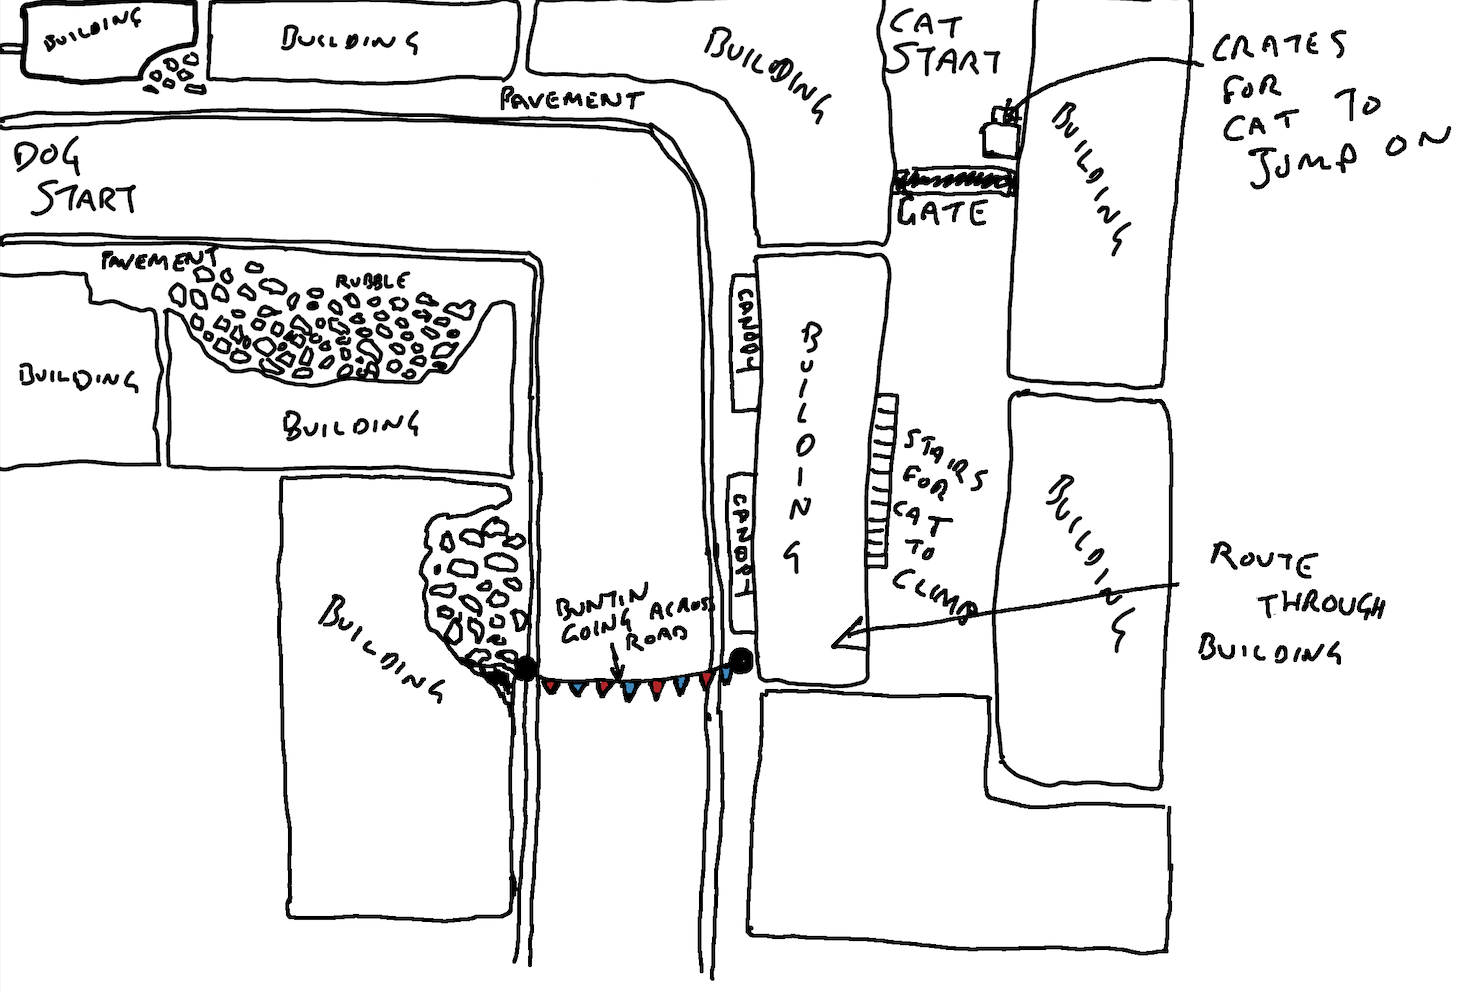 BUILDING
BUILDING
BUILDING
CAT
START
CRATES
FOR
CAT TO
JUMP ON
PAVEMENT
DOG
START
BUILDING
GATE
PAVEMENT
RUBBLE
CANOPY
BUILDING
BUILDING
BUILDING
STAIRS
FOR
CAT
TO
CLIMB
CANOPY
BUILDING
ROUTE
THROUGH
BUILDING
BUNTIN
GOING ACROSS
ROAD
BUILDING